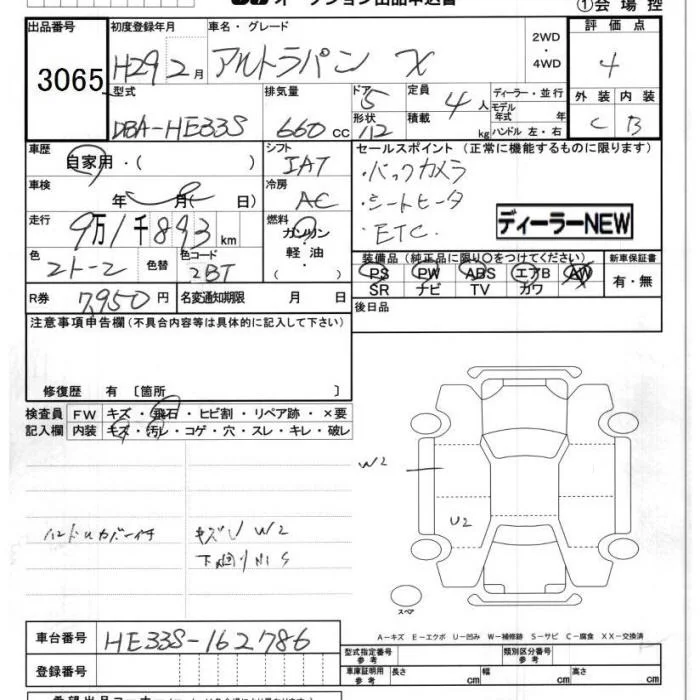 オークション出品申込書 ①会場控
出品番号 初度登録年月 車名・グレード 2WD・4WD 評価点
3065 H29 2月 アルトラパン X 4
型式 排気量 ドア 定員 ディーラー・並行 外装 内装
DBA-HE33S 660cc 5 4人 モデル年式 年 C B
形状 積載 kg ハンドル 左・右
112
車歴 自家用・( ) シフト IAT セールスポイント(正常に機能するものに限ります)
車検 年 月( 日) 冷房 AC ・バックカメラ
・シートヒータ
・ETC
ディーラーNEW
走行 9万1千893km 燃料 ガソリン・軽油
色 2トーン 色替 色コード 2BT
装備品(純正品に限り○をつけてください) 新車保証書
PS PW ABS エアB AW 有・無
SR ナビ TV カワ
R券 7,950円 名変通知期限 月 日 後日品
注意事項申告欄(不具合内容等は具体的に記入して下さい)
修復歴 有〔箇所 〕
検査員記入欄 FW キズ・飛石・ヒビ割・リペア跡・×要
内装 キズ・汚レ・コゲ・穴・スレ・キレ・破レ
W2
U2
キズU W2
スペア
A-キズ E-エクボ U-凹み W-補修跡 S-サビ C-腐食 XX-交換済
車台番号 HE33S-162786
型式指定番号 参考 類別区分番号 参考
登録番号 車庫証明用 参考 長さ cm 幅 cm 高さ cm